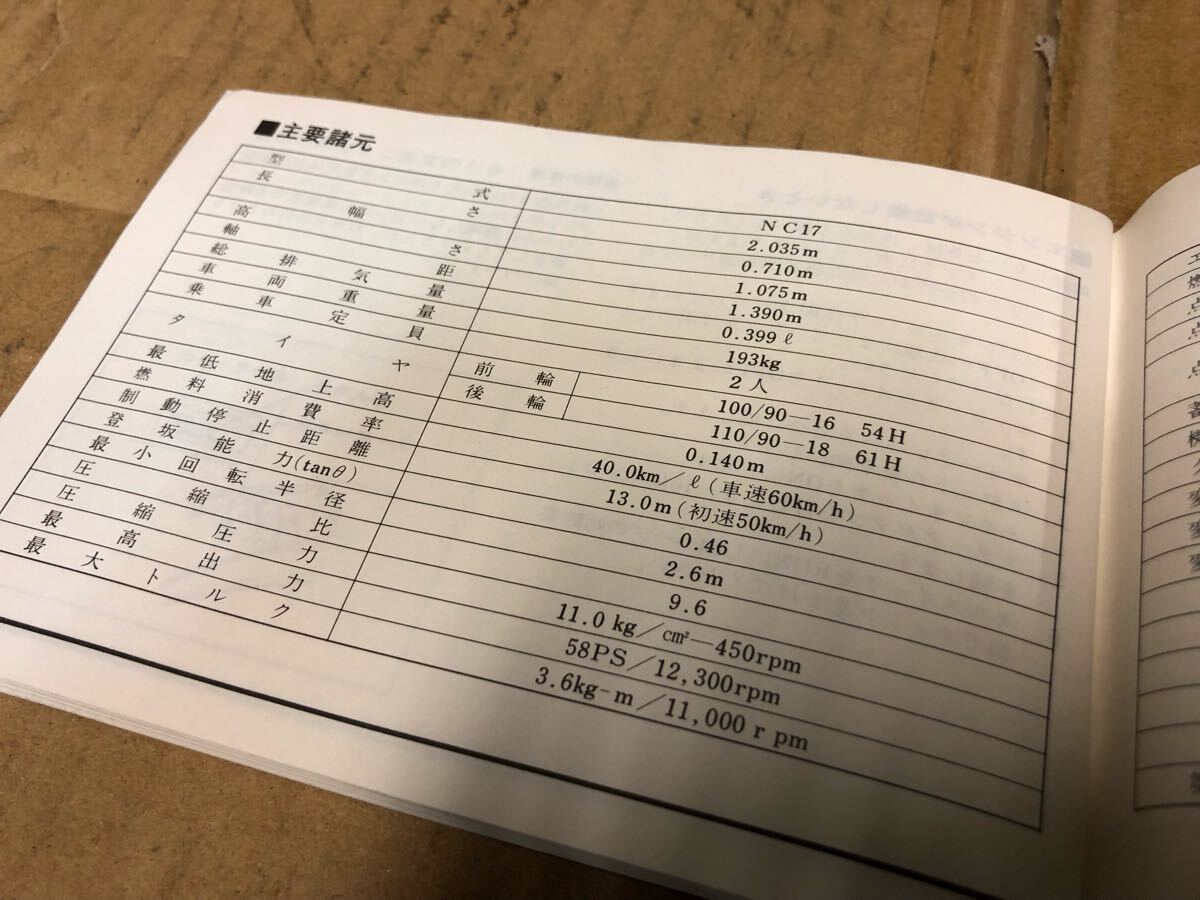 ■主要諸元
型式 NC17
長さ 2.035m
幅 0.710m
高さ 1.075m
軸距 1.390m
総排気量 0.399ℓ
車両重量 193kg
乗車定員 2人
タイヤ 前輪 100/90—16 54H
後輪 110/90—18 61H
最低地上高 0.140m
燃料消費率 40.0km／ℓ(車速60km/h)
制動停止距離 13.0m(初速50km/h)
登坂能力(tanθ) 0.46
最小回転半径 2.6m
圧縮比 9.6
圧縮圧力 11.0kg／cm²—450rpm
最高出力 58PS／12,300rpm
最大トルク 3.6kg-m／11,000rpm